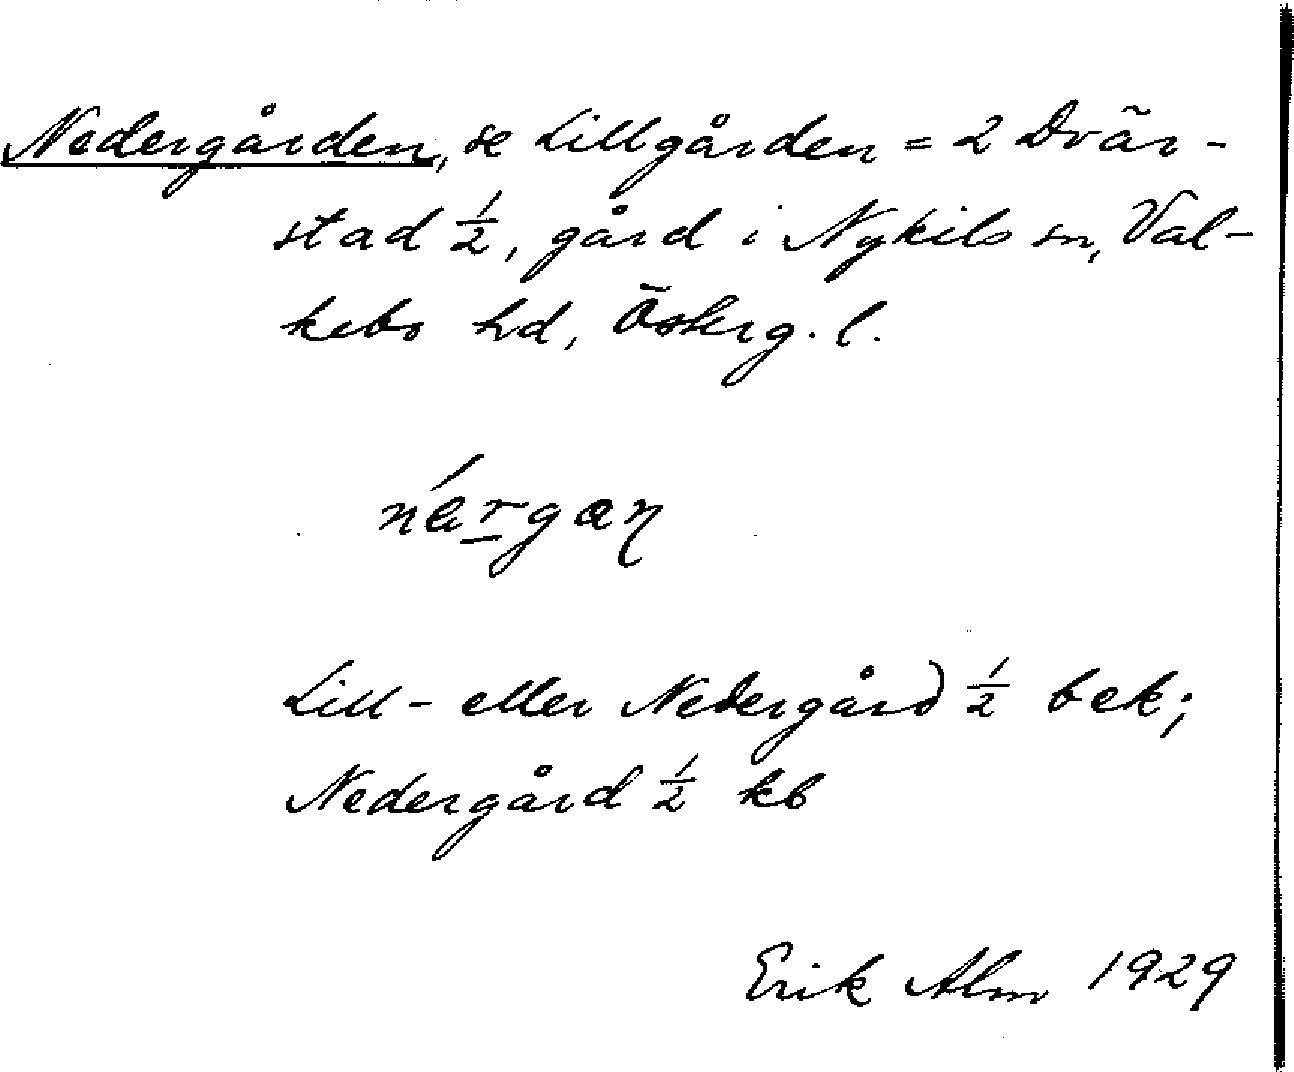 Nedergården, se Lillgården = 2 Dvär-
stad ½, gård i Nykils sn, Val-
kebo hd, Österg. l.
Lill- eller Nedergård) ½ bek;
Nedergård ½ kb
Erik Alm 1929